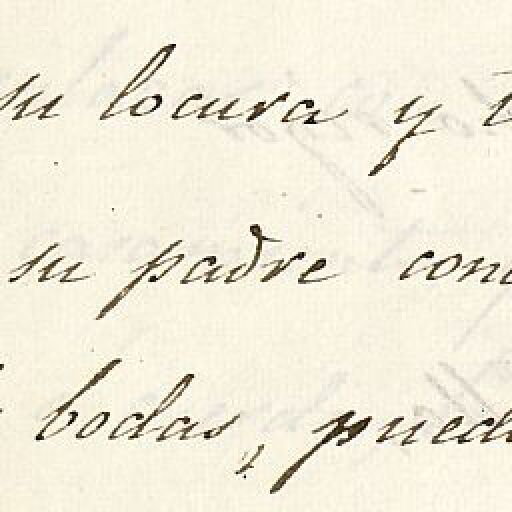 su locura y t
su padre con
bodas, pued